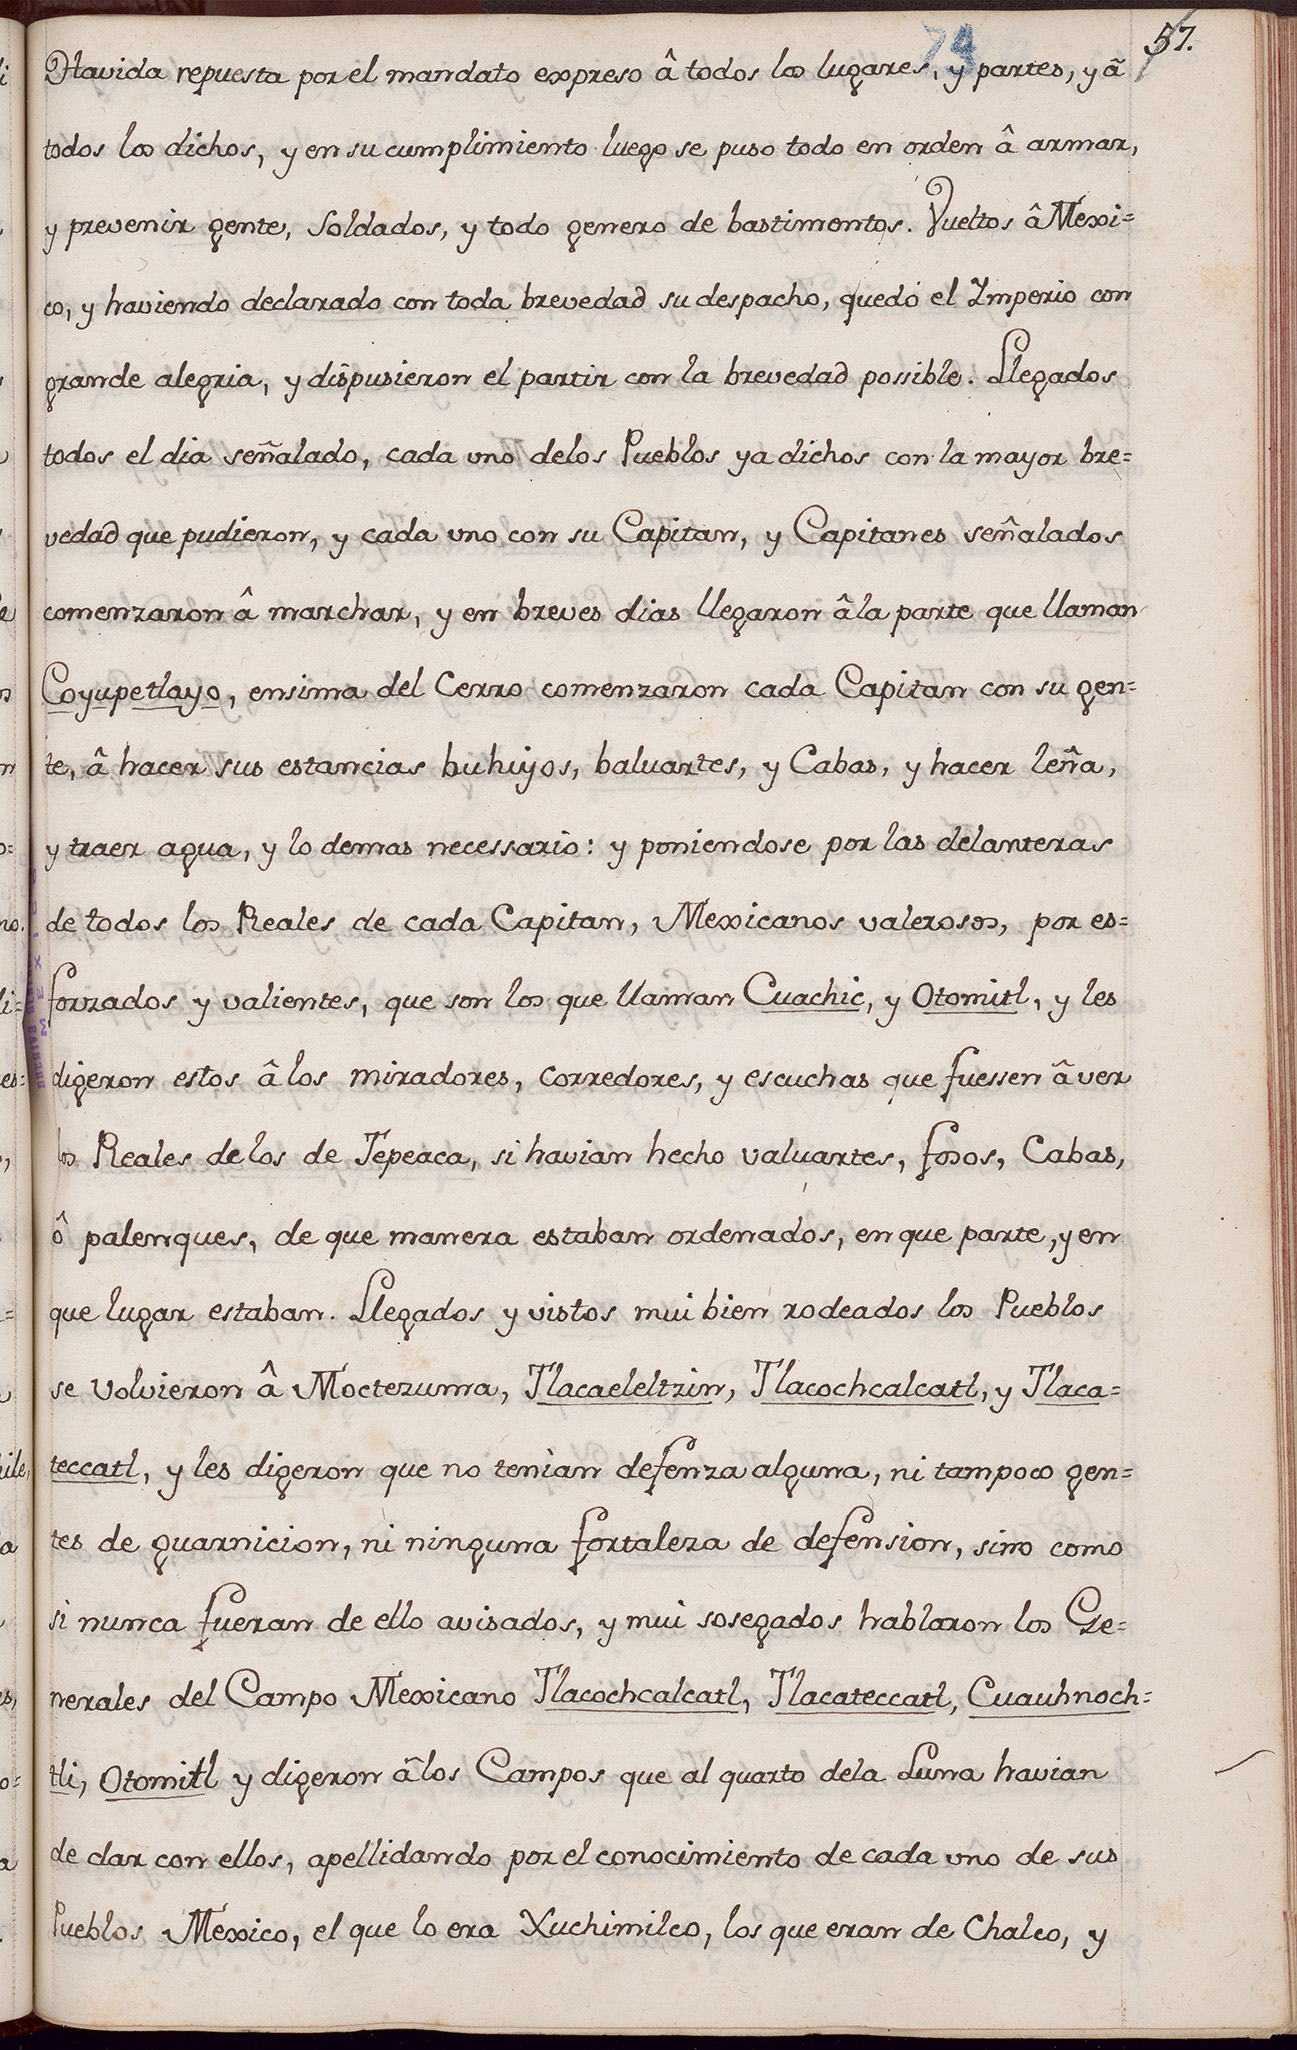 74
57.
Havida repuesta por el mandato expreso â todos los lugares, y partes, y â
todos los dichos, y en su cumplimiento luego se puso todo en orden â armar,
y prevenir gente, Soldados, y todo genero de bastimentos. Vueltos â Mexi=
co, y haviendo declarado con toda brevedad su despacho, quedó el Imperio con
grande alegria, y dispusieron el partir con la brevedad possible. Llegados
todos el dia señalado, cada uno delos Pueblos ya dichos con la mayor bre=
vedad que pudieron, y cada uno con su Capitan, y Capitanes señalados
comenzaron â marchar, y en breves dias llegaron â la parte que llaman
Coyupetlayo, ensima del Cerro comenzaron cada Capitan con su gen=
te, â hacer sus estancias buhiyos, baluartes, y Cabas, y hacer leña,
y traer agua, y lo demas necessario: y poniendose por las delanteras
de todos los Reales de cada Capitan, Mexicanos valerosos, por es=
forzados y valientes, que son los que llaman Cuachic, y Otomitl, y les
digeron estos â los miradores, corredores, y escuchas que fuessen â ver
los Reales delos de Tepeaca, si havian hecho valuartes, fosos, Cabas,
ô palenques, de que manera estaban ordenados, en que parte, y en
que lugar estaban. Llegados y vistos mui bien rodeados los Pueblos
se volvieron â Moctezuma, Tlacaeleltzin, Tlacochcalcatl, y Tlaca=
teccatl, y les digeron que no tenian defenza alguna, ni tampoco gen=
tes de guarnicion, ni ninguna fortaleza de defension, sino como
si nunca fueran de ello avisados, y mui sosegados hablaron los Ge=
nerales del Campo Mexicano Tlacochcalcatl, Tlacateccatl, Cuauhnoch=
tli, Otomitl y digeron â los Campos que al quarto dela Luna havian
de dar con ellos, apellidando por el conocimiento de cada uno de sus
Pueblos Mexico, el que lo era Xuchimilco, los que eran de Chalco, y